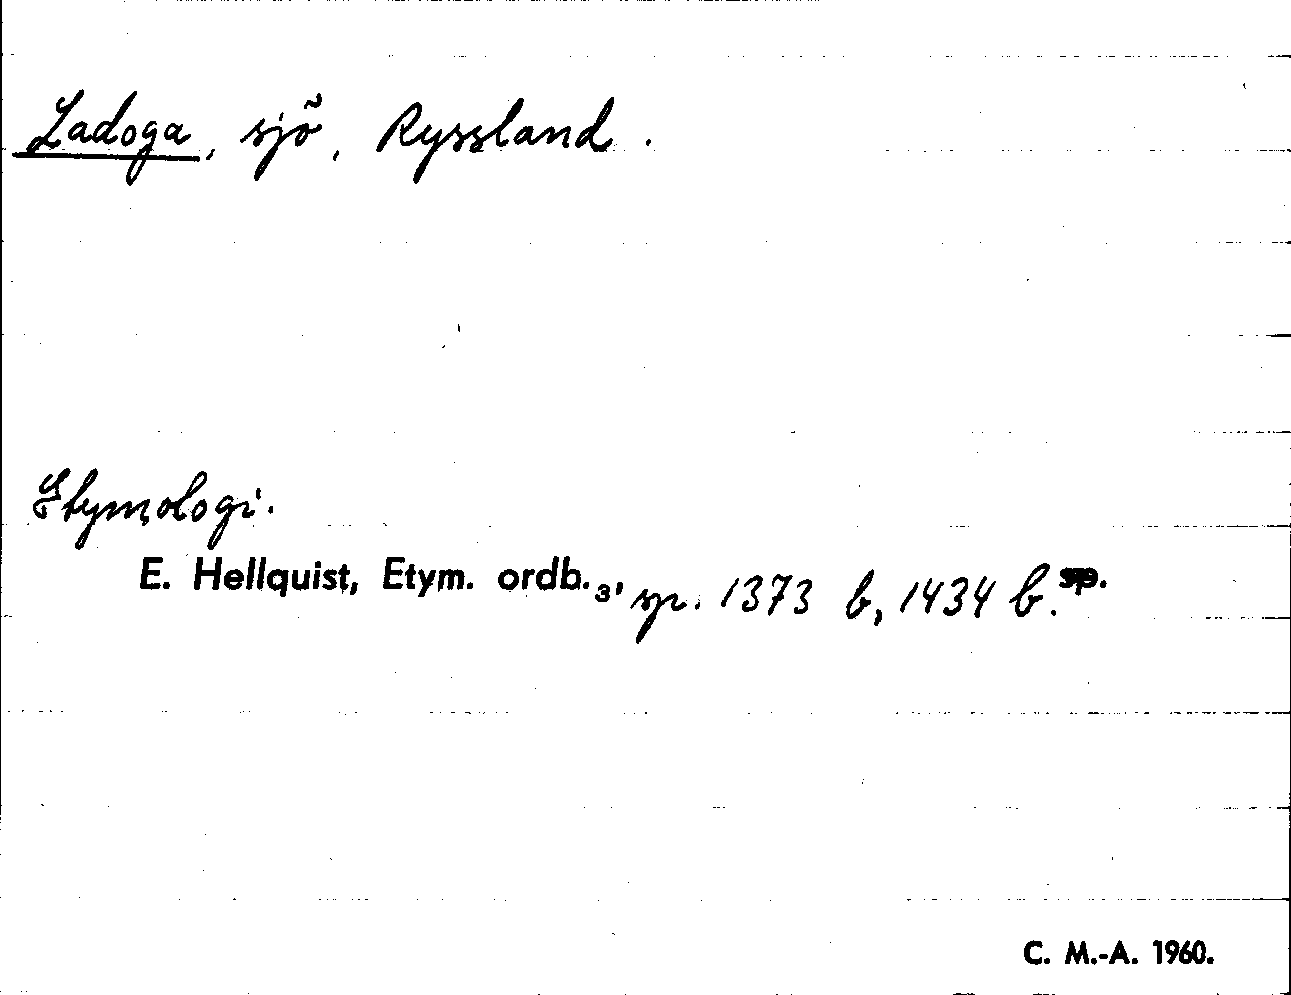 Ladoga, sjö, Ryssland.
Etymologi.
E. Hellquist, Etym. ordb.₃, sp. 1373 b, 1434 b. sp.
C. M.-A. 1960.